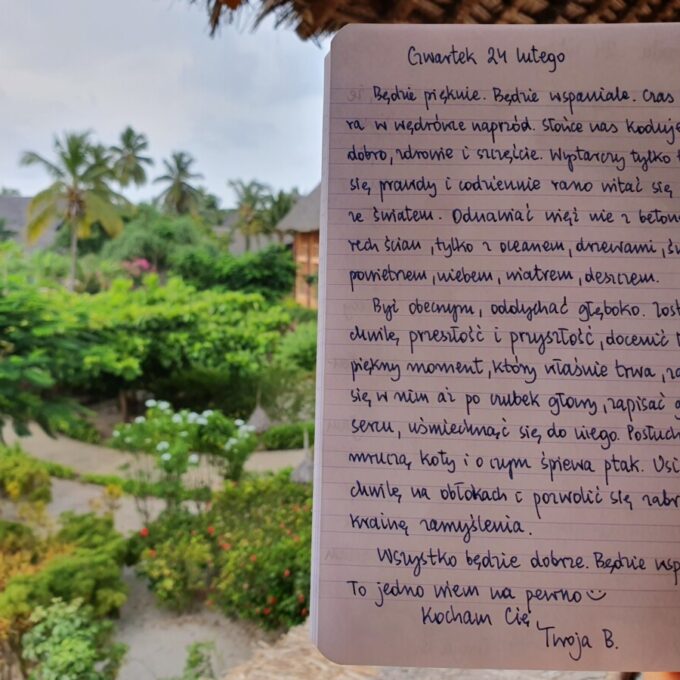 Czwartek 24 lutego
Będzie pięknie. Będzie wspaniale. Czas
ra w wędrówce naprzód. Słońce nas koduje
dobro, zdrowie i szczęście. Wystarczy tylko
się prawdy i codziennie rano witać się
ze światem. Odnawiać więź nie z beton
rech ścian, tylko z oceanem, drzewami,
powietrzem, niebem, wiatrem, deszczem.
Być obecnym, oddychać głęboko. Zost
chwilę przeszłość i przyszłość, docenić
piękny moment, który właśnie trwa, za
się w nim aż po czubek głowy, zapisać
sercu, uśmiechnąć się do niego. Posłuch
mruczą koty i o czym śpiewa ptak. Usi
chwilę na obłokach i pozwolić się zabr
krainę zamyślenia.
Wszystko będzie dobrze. Będzie wsp
To jedno wiem na pewno
Kocham Cię,
Twoja B.